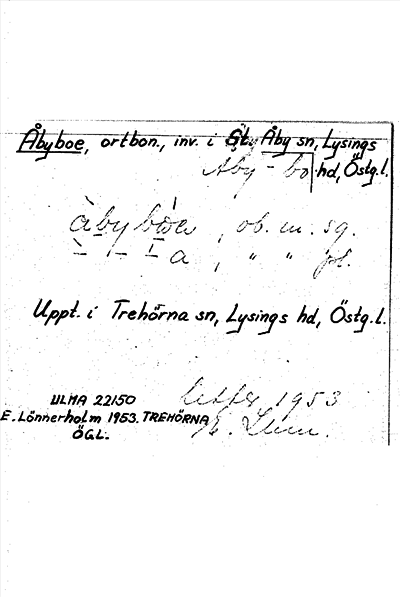 Åbyboe, ortbon., inv. i St. Åby sn, Lysings
Åby-bo hd, Östg.l.
àbybòe , ob. m. sg.
a , " " pl.
Uppt. i Trehörna sn, Lysings hd, Östg.l.
ULMA 22150
E. Lönnerholm 1953. TREHÖRNA
ÖGL.
1953
E.